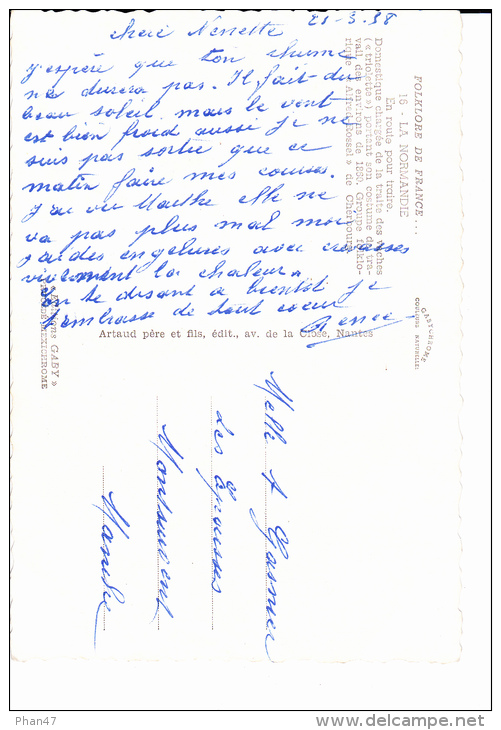 21-3.58
chère Nenette
j'espère que ton rhume
ne durera pas. Il fait du
beau soleil mais le vent
est bien froid aussi je ne
suis pas sortie que ce
matin faire mes courses.
J'ai vu Marthe elle ne
va pas plus mal moi
j'ai des engelures avec crevasses
vivement la chaleur.
En te disant a bientôt je
t'embrasse de tout coeur
Renée
FOLKLORE DE FRANCE...
16 - LA NORMANDIE
En route pour traire.
Domestique chargée de la traite des vaches
(« triolette ») portant son costume de tra-
vail des environs de 1830. Groupe folklo-
rique « Alfred Rossel » de Cherbourg.
GABYCHROME
COULEURS NATURELLES
GABY »
MEXICHROME
Artaud père et fils, édit., av. de la Close, Nantes
Melle A Gasnier
Les
Montsurvent
Manche
Phan47
www.delcampe.net